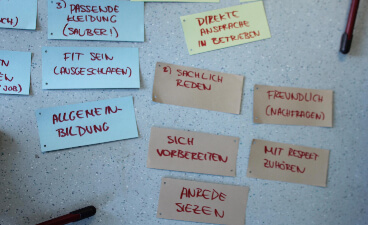 3) PASSENDE
KLEIDUNG
(SAUBER!)
FIT SEIN
(AUSGESCHLAFEN)
JOB)
ALLGEMEIN-
BILDUNG
DIREKTE
ANSPRACHE
IN BETRIEBEN
SACHLICH
REDEN
FREUNDLICH
(NACHFRAGEN)
SICH
VORBEREITEN
MIT RESPEKT
ZUHÖREN
ANREDE
SIEZEN